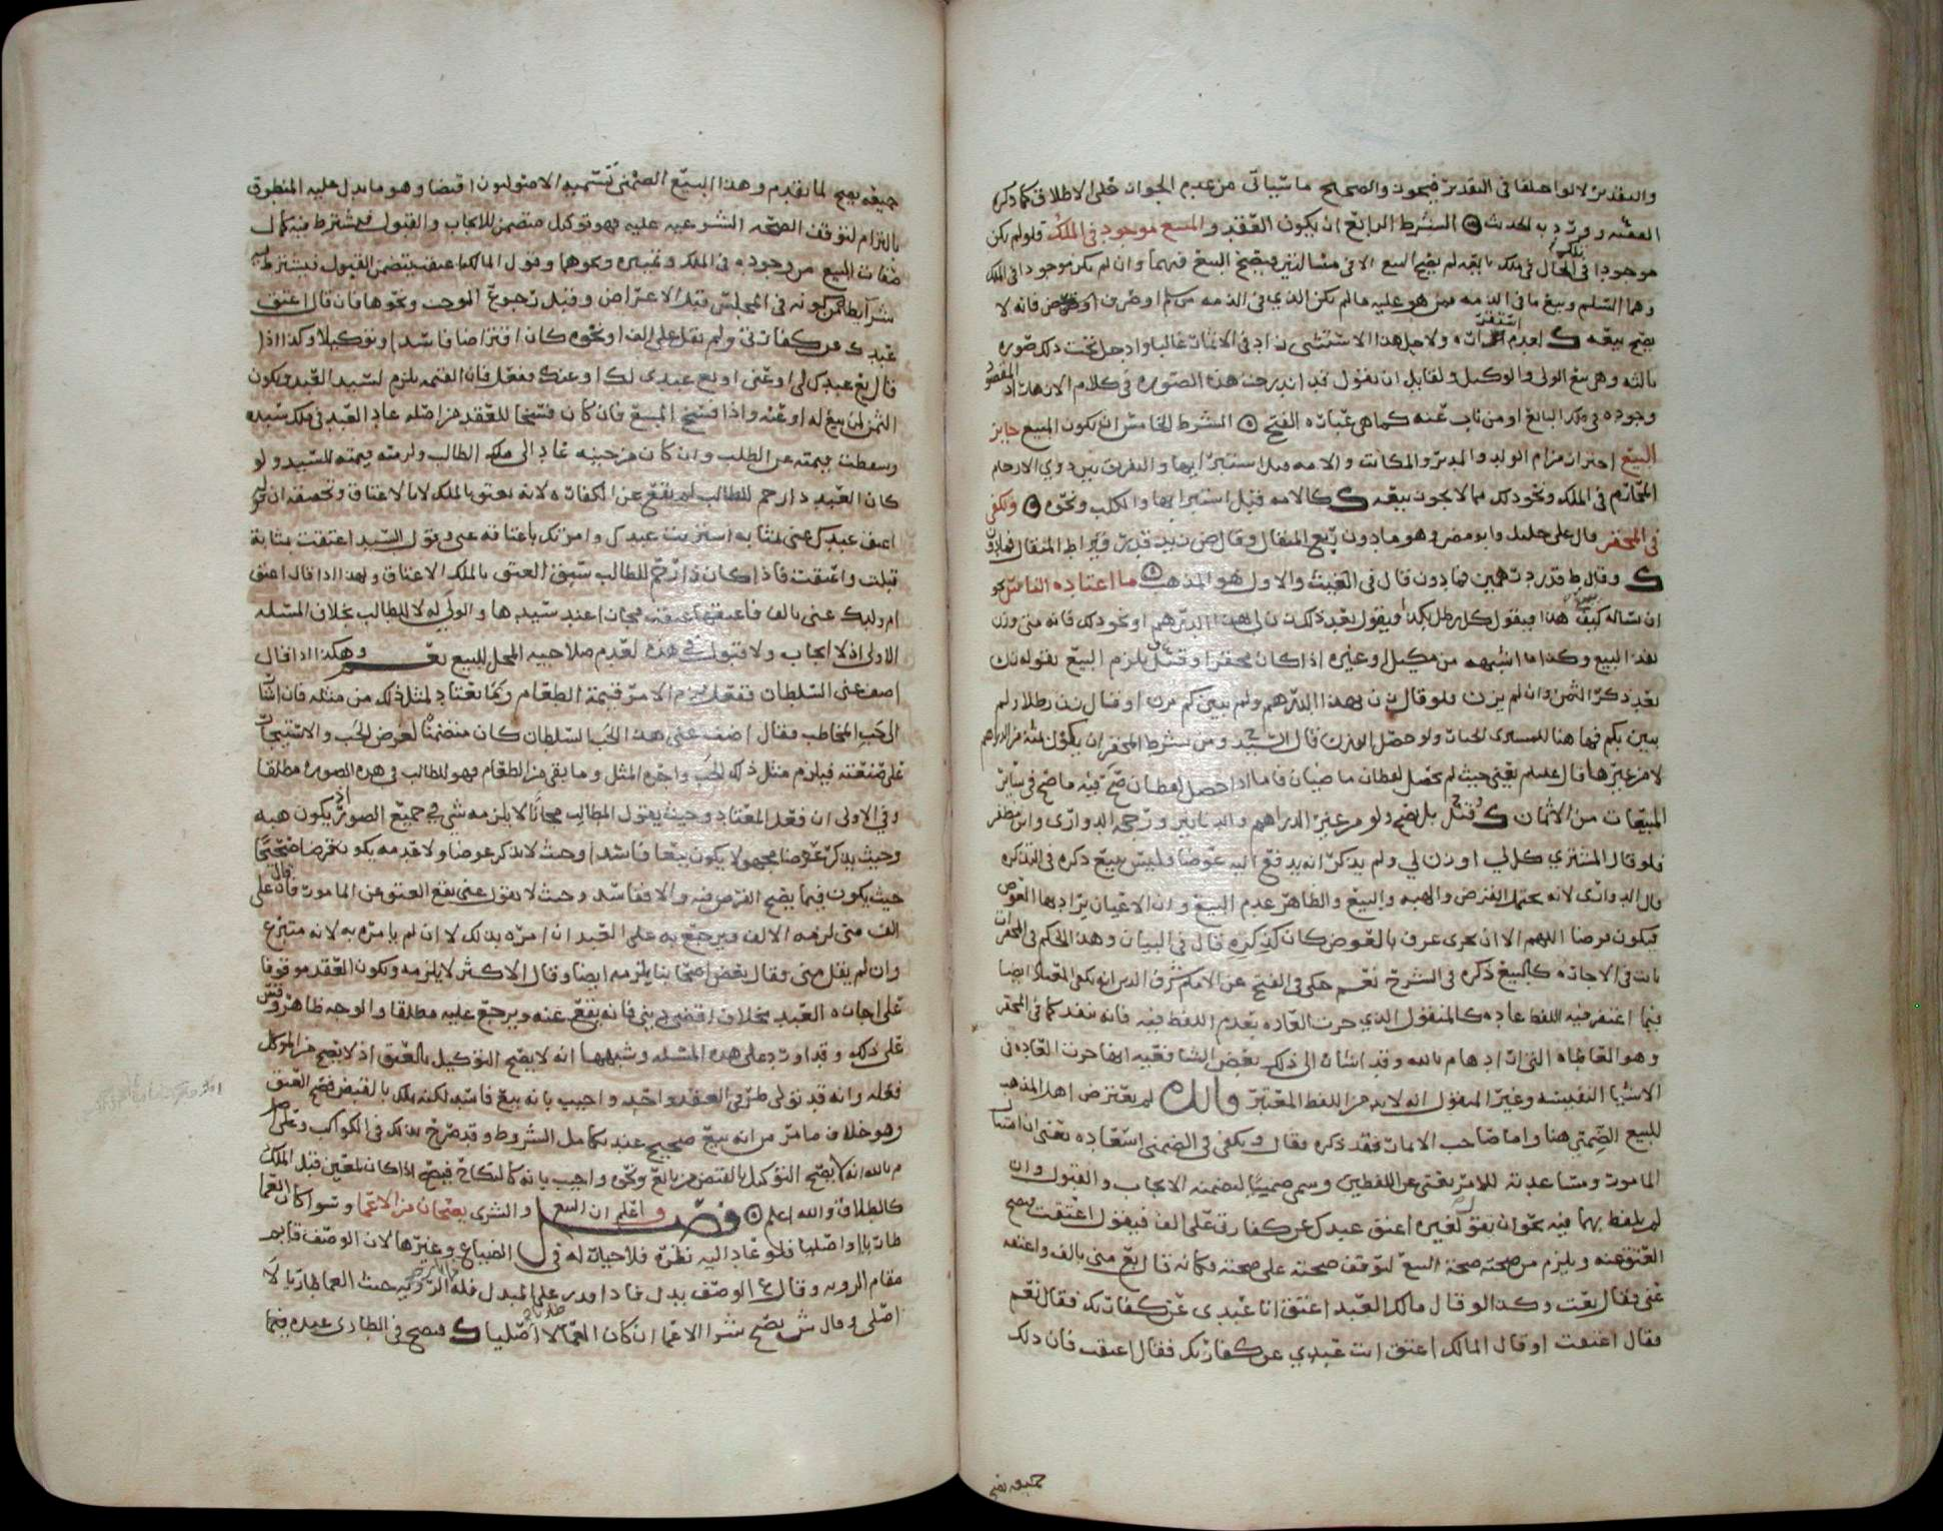 والتقدير لا لو اختلفا في التقدير فيجوز والصحيح ما سيأتي من عدم الجواز على الاطلاق كما ذكره
الفقيه وورد به الحديث الشرط الرابع ان يكون العقد والمبيع موجود في الملك فلو لم يكن
موجودا في الحال في ملك بايعه لم يصح البيع الا في مسالتين فيصح البيع فيهما وان لم يكن موجودا في الملك
وهما السلم وبيع ما في الذمه ممن هو عليه ما لم يكن الذي في الذمه من سلم او صرف فانه لا
يصح بيعه لعدم استقراره ولاجل هذا الاستثنى زاد في الاثمار غالبا وادخل تحت ذلك صوره
ثالثه وهي بيع الولي والوكيل ولقايل ان يقول قد اندرجت هذه الصوره في كلام الازهار اذ المقصود
وجوده في ملك البايع او من ناب عنه كما هي عباره الفتح الشرط الخامس ان يكون المبيع جايز
البيع احتراز من ام الولد والمدبر والمكاتب والامه قبل استبرايها والتفريق بين ذوي الارحام
المحارم في الملك ونحو ذلك مما لا يجوز بيعه كالامه قبل استبرايها والكلب ونحوه ويكفي
في المحقر قال علي خليل وابو مضر وهو ما دون ربع المثقال وقال ض زيد قدر قيراط المثقال فما دون
وقال ط قدر درهمين فما دون قال في الغيث والاول هو المذهب ما اعتاده الناس نحو
ان يساله كيف هذا فيقول كل رطل بكذا ويقول بعد ذلك زن لي بهذا الدرهم او نحو ذلك فانه متى وزن
نفذ البيع وكذا ما اشبهه من مكيل وغيره اذا كان محقرا وقيل يلزم البيع بقوله زن
بعد ذكر الثمن وان لم يزن فلو قال زن بهذا الدرهم ولم يبين كم يزن او قال زن رطلا ولم
يبين بكم فها هنا للمشتري الخيار ولو حصل الوزن قال السيد ومن شرط المحقر ان يكون ثمنه من الدراهم
لا من غيرها قال عليلم يعني حيث لم يحصل لفظان ماضيان فاما اذا حصل لفظان صح فيه ما صح في ساير
المبيعات من الاثمان قيل بل يصح ولو من غير الدراهم والدنانير ورجحه الدواري وابن مظفر
فلو قال المشتري كل لي او زن لي ولم يذكر انه يدفع اليه عوضا فليس ببيع ذكره في التذكره
قال الدواري لانه يحتمل القرض والهبه والبيع والظاهر عدم البيع وان الاغيان يراد بها القرض
فيكون قرضا اللهم الا ان يجري عرف بالعوض كان كذكره قال في البيان وهذا الحكم في المحقرات
يات في الاجاره كالبيع ذكره في الشرح نعم حكى في الفتح عن الامام شرف الدين انه يكفي المعاطاه ايضا
فيما اغتفر فيه اللفظ عاده كالمنقول الذي جرت العاده بعدم اللفظ فيه فانه ينفذ كما في المحقر
وهو المعاطاه التي ارادها م بالله وقد اشار الى ذلك بعض الشافعيه انها جرت العاده في
الاشيا النفيسه وغير المنقول انه لا بد من اللفظ المعتبر لم يعترض اهل المذهب
للبيع الضمني هنا واما صاحب الاثمار فقد ذكره فقال ويكفي في الضمني اسعاده يعني ان امتثال
المامور ومساعدته للامر يغني عن اللفظين وسمي ضمنيا لتضمنه الايجاب والقبول وان
لم يلفظ بهما فيه نحو ان يقول لغيره اعتق عبدك عن كفارتي على الف فيقول اعتقت فيصح
العتق عنه ويلزم من صحته صحة البيع لتوقف صحته على صحته فكانه قال بع مني بالف واعتقه
عني فقال بعت وكذا لو قال مالك العبد اعتق انا عبدي عن كفارتك فقال نعم
فقال اعتقت او قال المالك اعتق انت عبدي عن كفارتك فقال اعتقت فان ذلك
جميعه يصح
جميعه يصح لما تقدم وهذا البيع الضمني تسميه الاصوليون اقتضا وهو ما يدل عليه المنطوق
بالتزام لتوقف الصحه الشرعيه عليه فهو توكيل متضمن للايجاب والقبول فيشترط فيه كمال
صفات المبيع من وجوده في الملك وتمييزه ونحوهما وقول المالك اعتقت يتضمن القبول فيشترط فيه
شرايطه من كونه في المجلس قبل الاعراض وقبل رجوع الموجب ونحوها فان قال اعتق
عبدك عن كفارتي ولم يقل على الف او نحوه كان اقتراضا فاسدا وتوكيلا وكذا اذا
قال بع عبدك لي او عني او بع عبدي لك او عنك ففعل فان القيمه تلزم لسيد العبد ويكون
الثمن لمن بيع له او عنه واذا فسخ المبيع فان كان فسخا للعقد من اصله عاد العبد في ملك سيده
وسقطت قيمته عن الطالب وان كان من حينه عاد الى ملك الطالب ولزمته قيمته للسيد ولو
كان العبد ذا رحم للطالب لم يقع عن الكفاره لانه يعتق بالملك لا بالاعتاق وتحقيقه ان قوله
اعتق عبدك عني بمثابه اشتريت عبدك وامرتك باعتاقه عني وقول السيد اعتقت بمثابة
قبلت واعتقت فاذا كان ذا رحم للطالب سبق العتق بالملك الاعتاق ولهذا اذا قال اعتق
ام ولدك عني بالف فاعتقها عتقت مجانا عند سيدها والولي له لا للطالب بخلاف المسله
الاولى اذ لا ايجاب ولا قبول في هذه لعدم صلاحيه المحل للبيع نعم وهكذا اذا قال
اضف عني السلطان ففعل لزم الامر قيمة الطعام وكما يعتاد لمثل ذلك من مثله فان اشار
الى حب المخاطب فقال اضف عني بهذا الحب السلطان كان متضمنا لقرض الحب والاستيجار
على صنعته فيلزم مثل ذلك الحب واجرة المثل وما بقي من الطعام فهو للطالب في هذه الصورة مطلقا
وفي الاولى ان فعل المعتاد وحيث يقول المطالب مجانا لا يلزمه شي في جميع الصور اذ يكون هبه
وحيث يذكر عوضا مجهولا يكون بيعا فاسدا وحيث لا يذكر عوضا ولا عدمه يكون قرضا صحيحا
حيث يكون فيما يصح القرض فيه والا ففاسد وحيث لا يقول عني يقع العتق عن المامور فان قال على
الف مني لزمه الالف ويرجع به على العبد ان امره بذلك لا ان لم يامره به لانه متبرع
وان لم يقل مني فقال بعض اصحابنا يلزمه ايضا وقال الاكثر لا يلزمه ويكون العقد موقوفا
على اجازه العبد بخلاف اقض ديني فانه يقع عنه ويرجع عليه مطلقا والوجه ظاهر وقس
على ذلك وقد اورد على هذه المسئله وشبهها انه لا يصح التوكيل بالعتق اذ لا يصح من الموكل
فعله وانه قد تولى طرفي العقد واحد واجيب بانه بيع فاسد لكنه يملك بالقبض فيصح العتق
وهو خلاف ما مر من انه بيع صحيح عند تكامل الشروط وقد صرح بذلك في الكواكب وعلى اصل
م بالله انه لا يصح التوكيل بالقبض من بايع ونحوه واجيب بانه كالنكاح فيصح اذا كان لمعين قبل الملك
كالطلاق والله اعلم فصل واعلم ان البيع والشرى يصحان من الاعمى وسوا كان العمى
طاريا او اصليا فلو عاد اليه نظره فلا خيار له في الضياع وغيرها لان الوصف قايم
مقام الرويه وقال ع الوصف بدل فاذا قدر على المبدل فله الرويه حيث العمى طاريا لا
اصلي وقال ش يصح شرا الاعمى ان كان العمى طاريا لا اصليا فيصح في الطاري عنده فيما